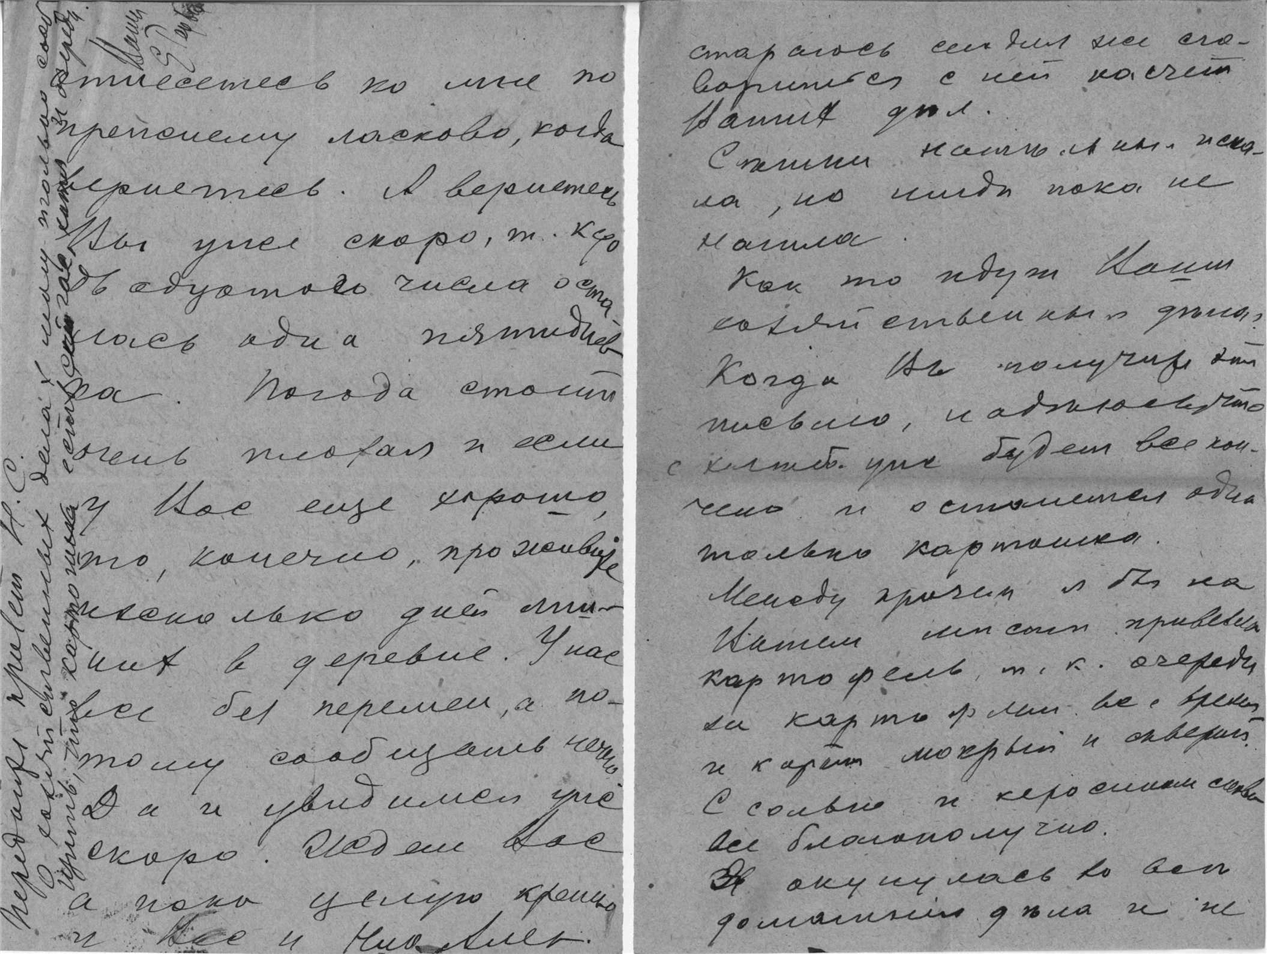 тнесетесь ко мне по
прежнему ласково, когда
вернетесь. А вернетесь
Вы уже скоро, т. к. до
двадцатого числа оста
лась одна пятиднев
ка. Погода стоит
очень плохая и если
у Вас еще хорошо,
то, конечно, проживите
несколько дней лиш-
них в деревне. У нас
все без перемен, а по-
тому сообщать нечего
Да и увидимся уже
скоро. Ждем Вас
а пока целую крепко
и Вас и Ию Алек.
Передайте привет Н. С.
О хозяйственных делах могу только сооб
щить, что картошка есть
Ваша
стараюсь сегодня же сго-
вориться с ней насчет
Ваших дел.
Спички начальные иска-
ла, но нигде пока не
нашла.
Как то идут Ваши
хозяйственные дела?
Когда Вы получите это
письмо, надеюсь, что
с уже будет все кон-
чено и останется одна
только картошка.
Между прочим я бы на
Вашем месте привезла
картофель, т. к. очереди
за картофелем все время
и мокрый и скверный.
С солью и керосином
все благополучно.
Я окунулась во все
домашние дела и не